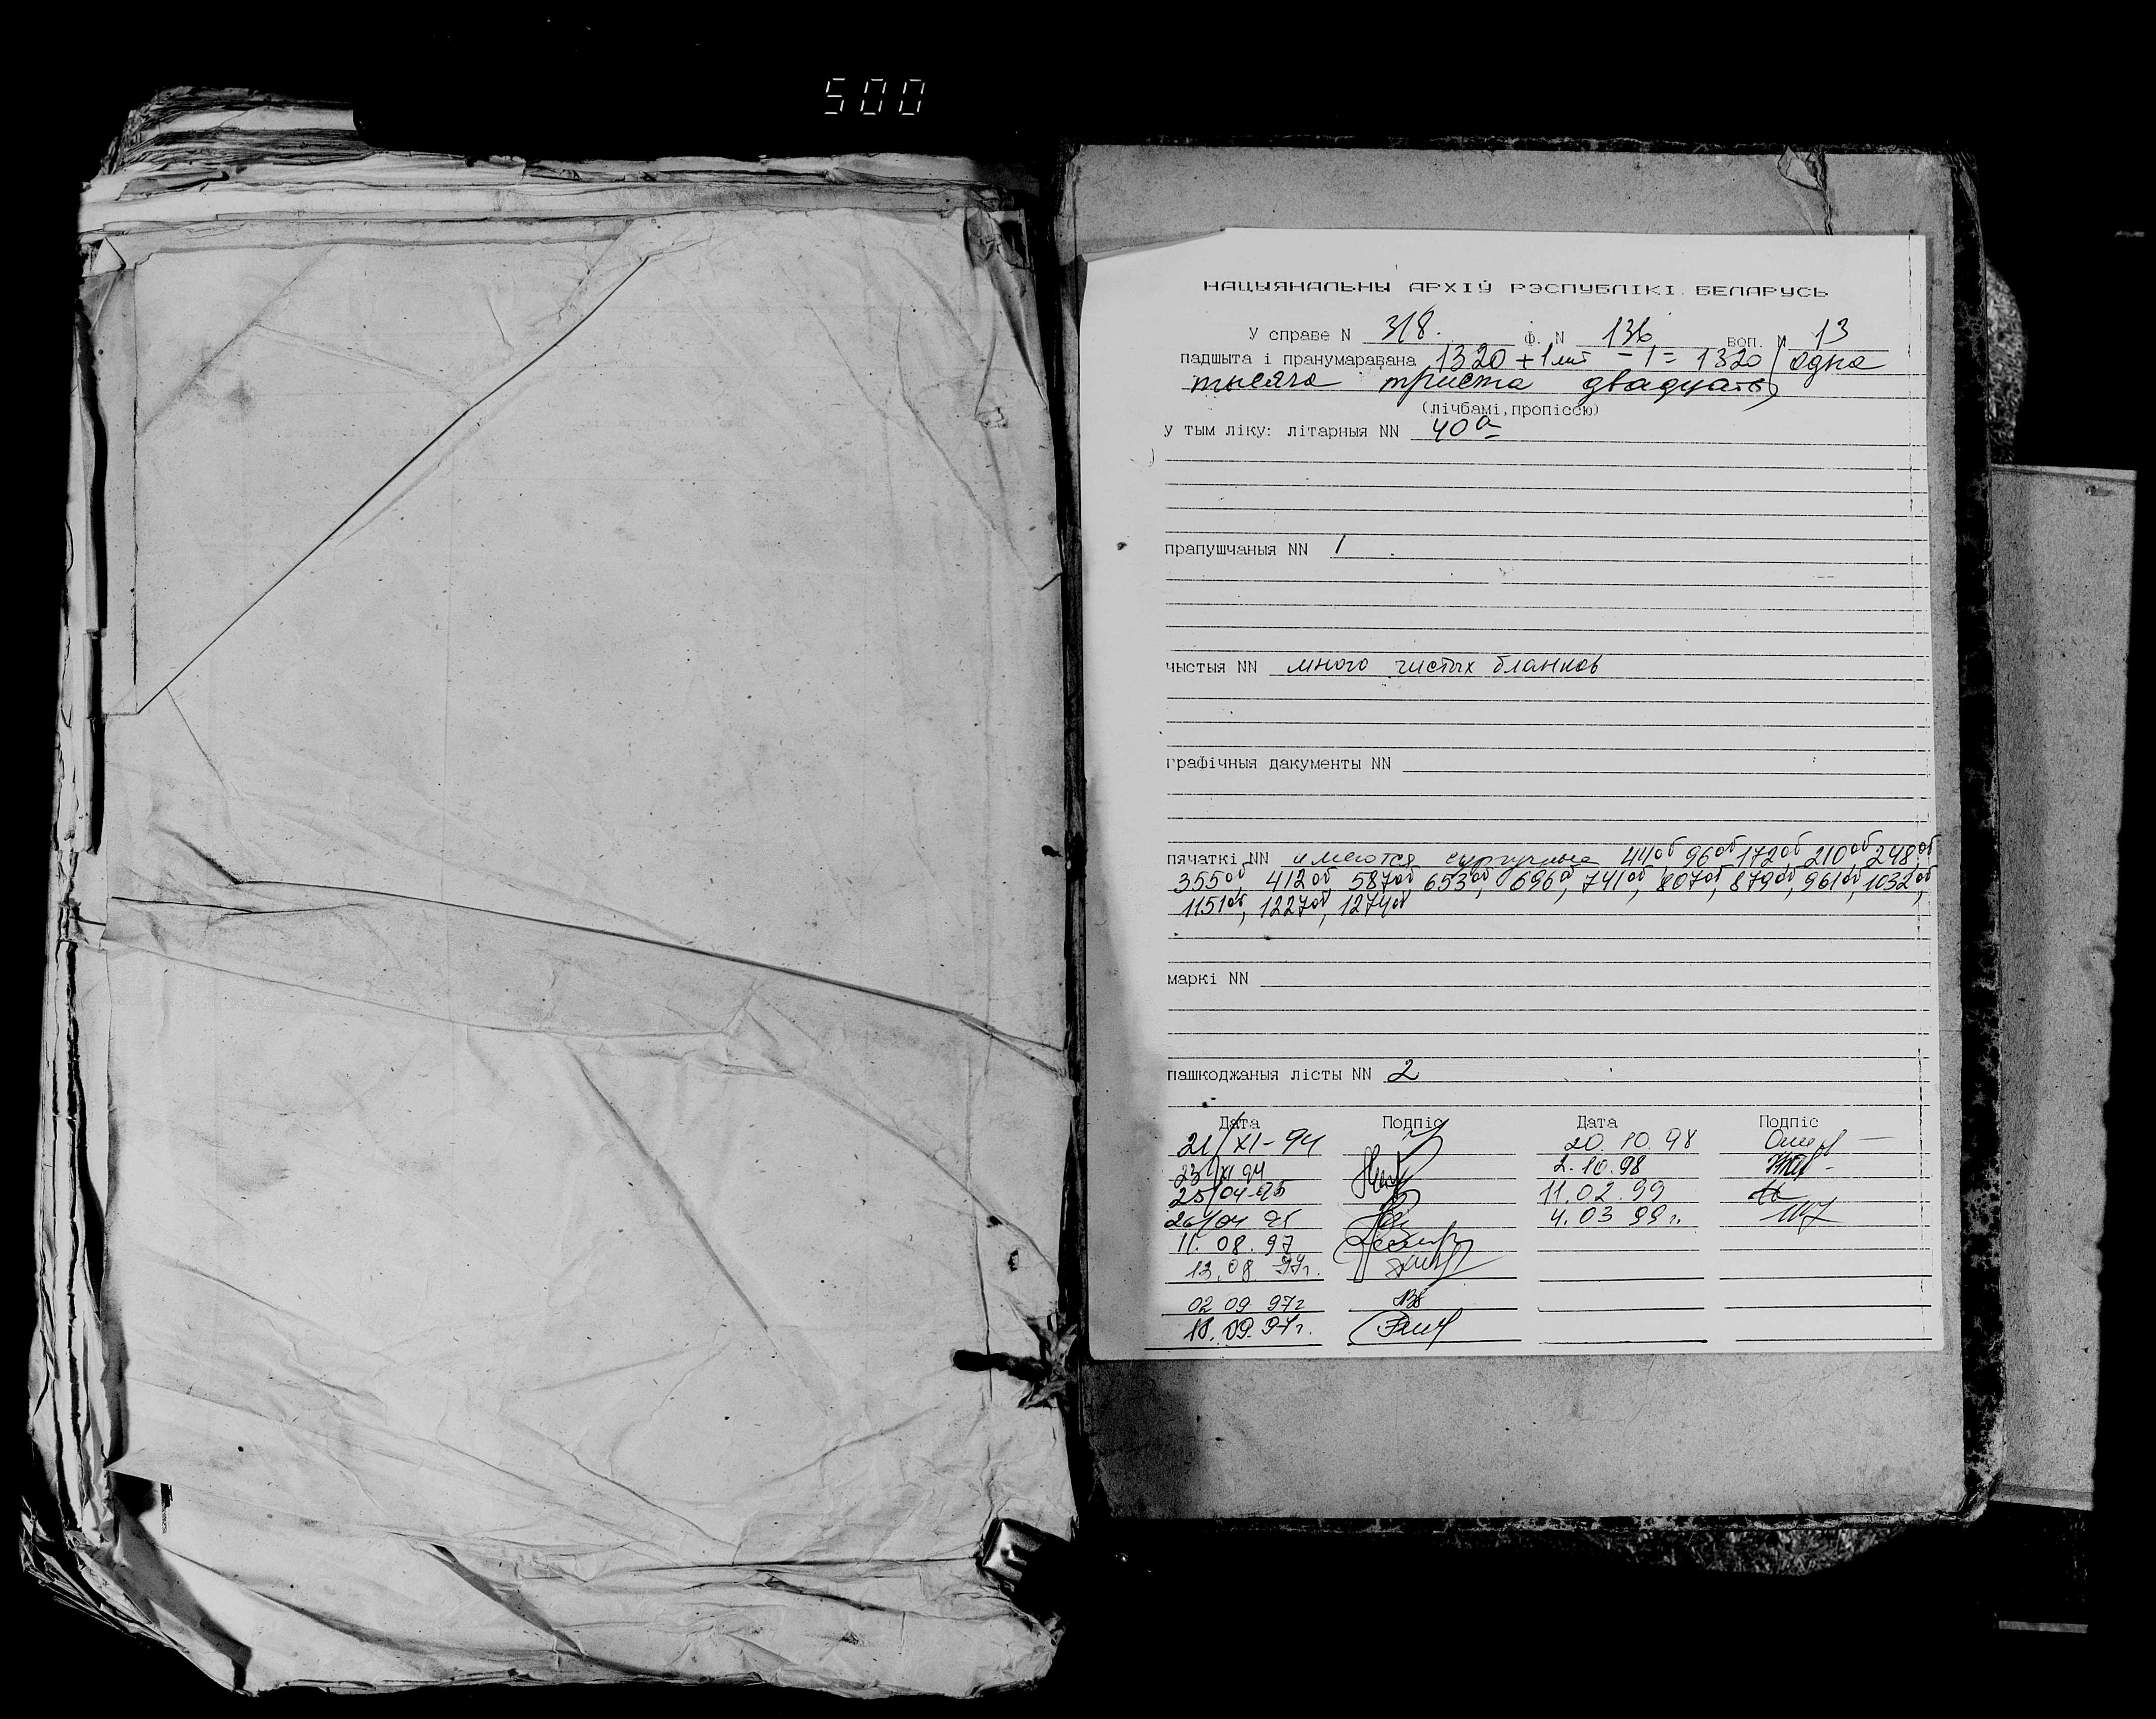 500
НАЦЫЯНАЛЬНЫ АРХІЎ РЭСПУБЛІКІ БЕЛАРУСЬ
У справе N 318. Ф. N 136 воп. N 13
падшыта і пранумаравана 1320 + 1 лит - 1 = 1320 (одна
тысяча триста двадцать)
(лічбамі, пропіссю)
у тым ліку: літарныя NN 40а
прапушчаныя NN 1
чыстыя NN много чистых бланков
графічныя дакументы NN
пячаткі NN имеются сургучные 44об 96об 172об 210об, 248об
355об, 412об, 587об, 653об, 696об, 741об, 807об, 879об, 961об, 1032об,
1151об, 1227об, 1274об
маркі NN
пашкоджаныя лісты NN 2
Дата Подпіс Дата Подпіс
21/XI-94 20.10.98
23/XI 94 2.10.98
25/04-95 11.02.99
26/04 95 4.03 99г.
11.08.97
13.08 97г.
02 09 97г
18.09.97г.